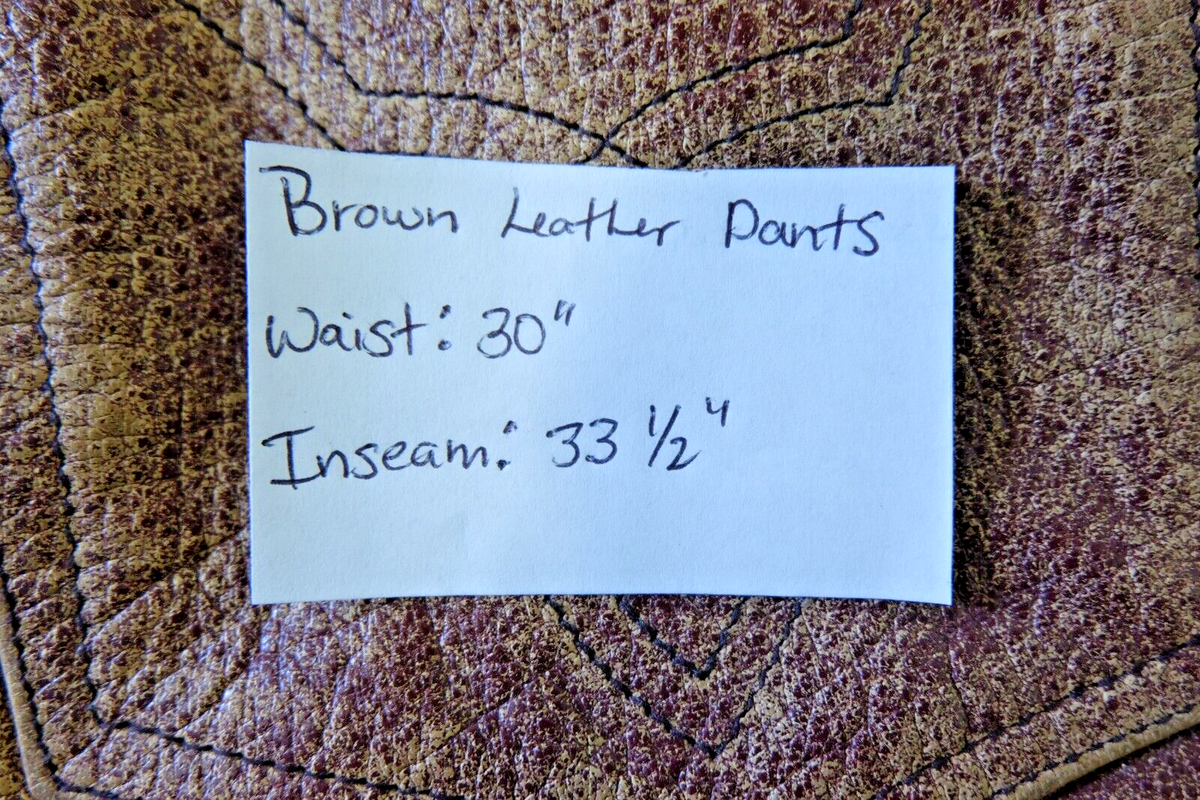 Brown Leather Pants
Waist: 30"
Inseam: 33 1/2"